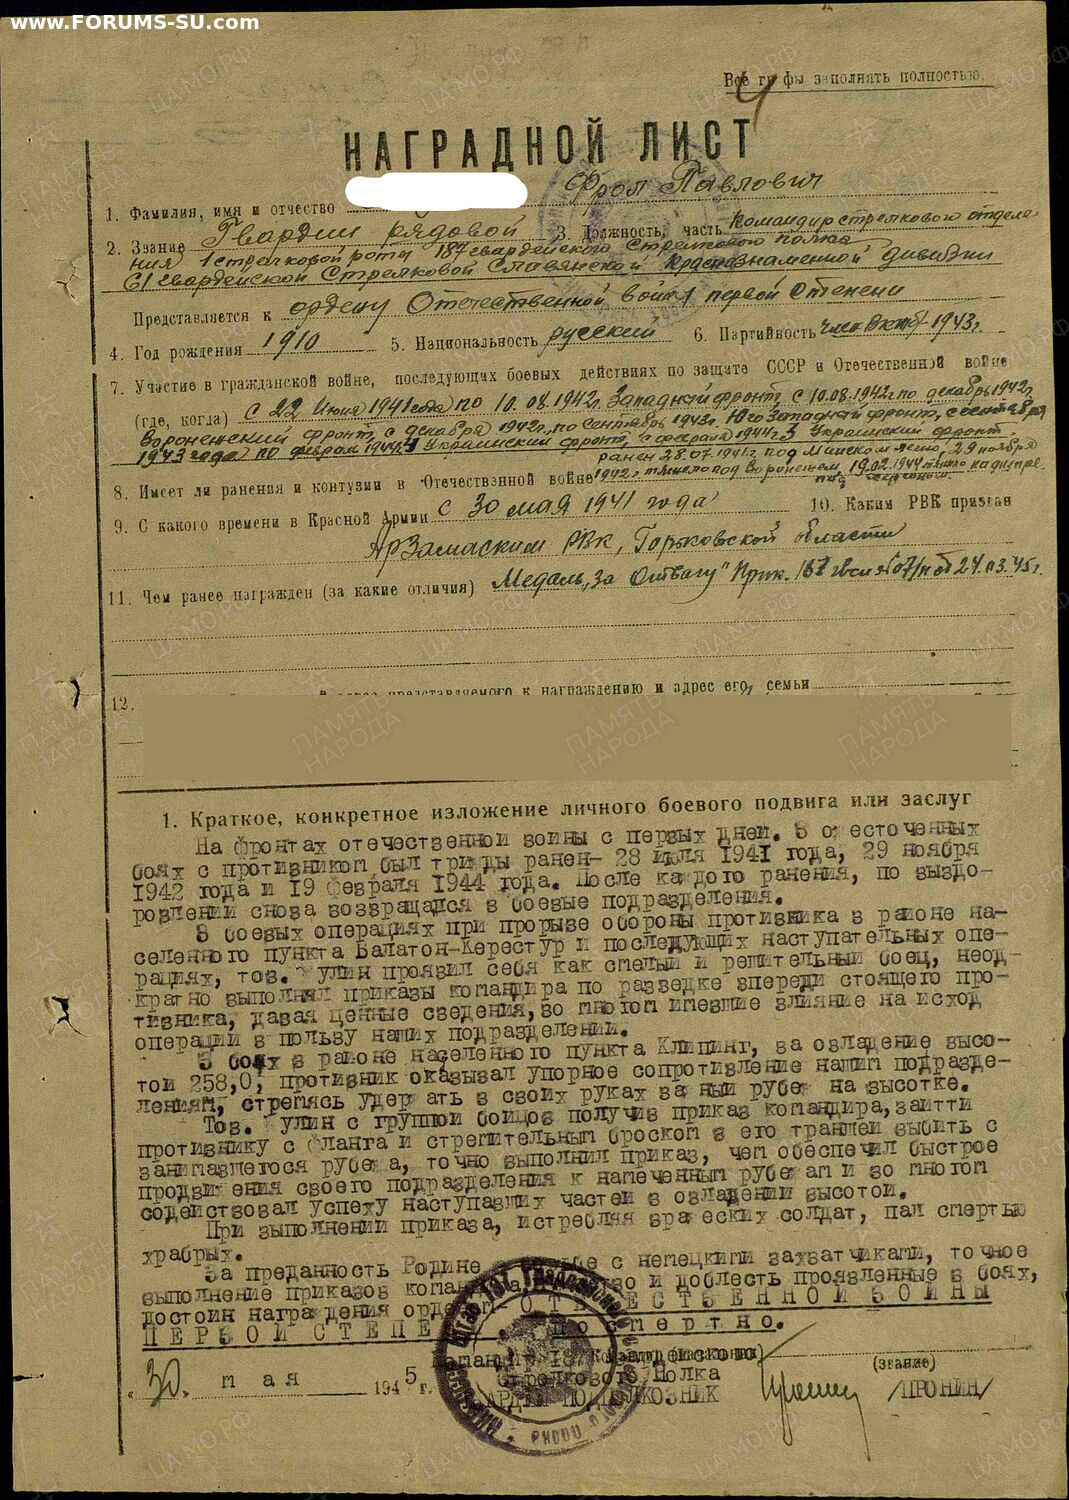 www.FORUMS-SU.com
Все графы заполнять полностью.
4
НАГРАДНОЙ ЛИСТ
1. Фамилия, имя и отчество Фрол Павлович
2. Звание Гвардии рядовой 3. Должность, часть Командир стрелкового отделе
ния 1 стрелковой роты 187 гвардейского стрелкового полка
61 гвардейской Стрелковой Славянской Краснознаменной дивизии
Представляется к ордену Отечественной войны первой степени
4. Год рождения 1910 5. Национальность русский 6. Партийность член Окт 1943г.
7. Участие в гражданской войне, последующих боевых действиях по защите СССР и Отечественной войне
(где, когда) с 22 Июня 1941 года по 10.08.1942г. Западный фронт, с 10.08.1942г по декабрь 1942г.
Воронежский фронт, с декабря 1942г. по сентябрь 1943г. Юго Западный фронт, с сентября
1943 года по февраль 1944г. 4 Украинский фронт, с февраля 1944г. 3 Украинский фронт.
ранен 28.07.1941г. под Минском легко, 29 ноября
8. Имеет ли ранения и контузии в Отечественной войне 1942г. тяжело под Воронежем, 19.02.1944 тяжело
9. С какого времени в Красной Армии с 30 мая 1941 года 10. Каким РВК призван
Арзамаским РВК, Горьковской области
11. Чем ранее награжден (за какие отличия) Медаль "За Отвагу" Прик. 187 от 24.03.45г.
12. адрес представляемого к награждению и адрес его семьи
1. Краткое, конкретное изложение личного боевого подвига или заслуг
На фронтах отечественной войны с первых дней. В о естоточенных
боях с противником был трижды ранен- 28 июля 1941 года, 29 ноября
1942 года и 19 февраля 1944 года. После каждого ранения, по выздо-
ровлении снова возвращался в боевые подразделения.
В боевых операциях при прорыве обороны противника в районе на-
селенного пункта Балатон-Керестур и последующих наступательных опе-
рациях, тов. улин проявил себя как смелый и решительный боец, неод-
кратно выполнял приказы командира по разведке впереди стоящего про-
тивника, давая ценные сведения, во многом имевшие влияние на исход
операции в пользу наших подразделений.
В боях в районе населенного пункта Клипинг, за овладение высо-
той 258,0, противник оказывал упорное сопротивление нашим подразде-
лениям, стремясь удержать в своих руках занятый рубеж на высотке.
Тов. улин с группой бойцов получив приказ командира, зайти
противнику с фланга и стремительным броском в его траншеи выбить с
занимавшегося рубежа, точно выполнил приказ, чем обеспечил быстрое
продвижения своего подразделения к намеченным рубежам и во многом
содействовал успеху наступавших частей в овладении высотой.
При выполнении приказа, истребляя вражеских солдат, пал смертью
храбрых.
За преданность Родине, с немецкими захватчиками, точное
выполнение приказов командира и доблесть проявленные в боях,
достоин награждения орденом ОТЕЧЕСТВЕННОЙ ВОЙНЫ
ПЕРВОЙ СТЕПЕ посмертно.
Командир 187 гвардейского
(звание)
Стрелкового Полка
"30" мая 1945 г. ГВАРДИИ ПОДПОЛКОВНИК /ПРОНИН/